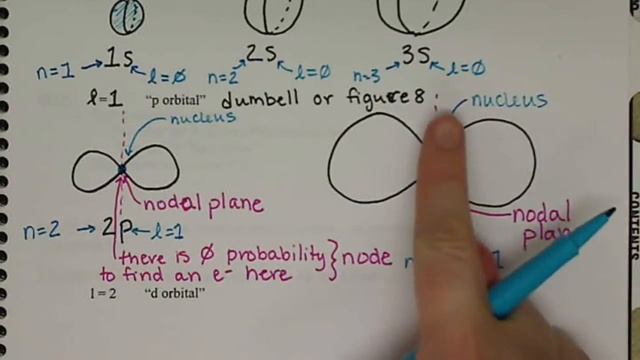 1s 2s 3s
n=1 l=0 n=2 l=0 n=3 l=0
l=1 "p orbital" dumbell or figure 8
nucleus nucleus
nodal plane nodal
n=2 2p l=1
there is Ø probability node
to find an e- here
l = 2 "d orbital"
CONTENTS